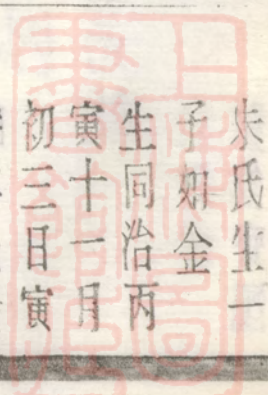 朱氏生一
子如金
生同治丙
寅十一月
初三日寅